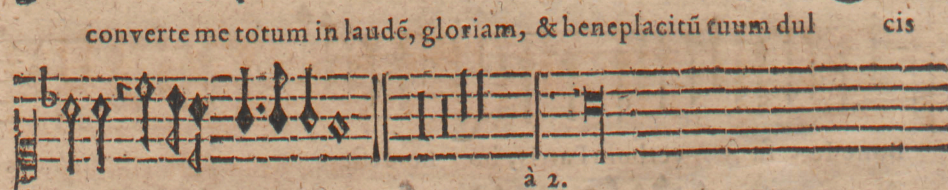 converte me totum in laudẽ, gloriam, & beneplacitũ tuum dul cis
à 2.